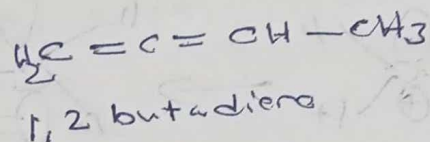 H₂C = C = CH — CH3
1,2 butadieno